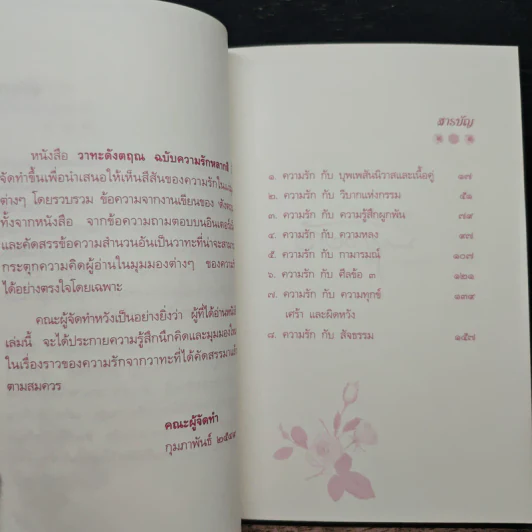 หนังสือ วาทะดังตฤณ ฉบับความรักหลากสี
จัดทำขึ้นเพื่อนำเสนอให้เห็นสีสันของความรักใน
ต่างๆ โดยรวบรวม ข้อความจากงานเขียนของ
ทั้งจากหนังสือ จากข้อความถามตอบบน
และคัดสรรข้อความสำนวนอันเป็นวาทะที่น่าจะ
กระตุกความคิดผู้อ่านในมุมมองต่างๆ ของ
ได้อย่างตรงใจโดยเฉพาะ
คณะผู้จัดทำหวังเป็นอย่างยิ่งว่า ผู้ที่ได้อ่าน
เล่มนี้ จะได้ประกายความรู้สึกนึกคิดและมุมมอง
ในเรื่องราวของความรักจากวาทะที่ได้คัดสรรมา
ตามสมควร
คณะผู้จัดทำ
กุมภาพันธ์
สารบัญ
๑. ความรัก กับ บุพเพสันนิวาสและเนื้อคู่ ๑๗
๒. ความรัก กับ วิบากแห่งกรรม ๕๑
๓. ความรัก กับ ความรู้สึกผูกพัน ๗๙
๔. ความรัก กับ ความหลง ๙๗
๕. ความรัก กับ กามารมณ์ ๑๐๗
๖. ความรัก กับ ศีลข้อ ๓ ๑๒๑
๗. ความรัก กับ ความทุกข์ ๑๓๕
เศร้า และผิดหวัง
๘. ความรัก กับ สัจธรรม ๑๕๗